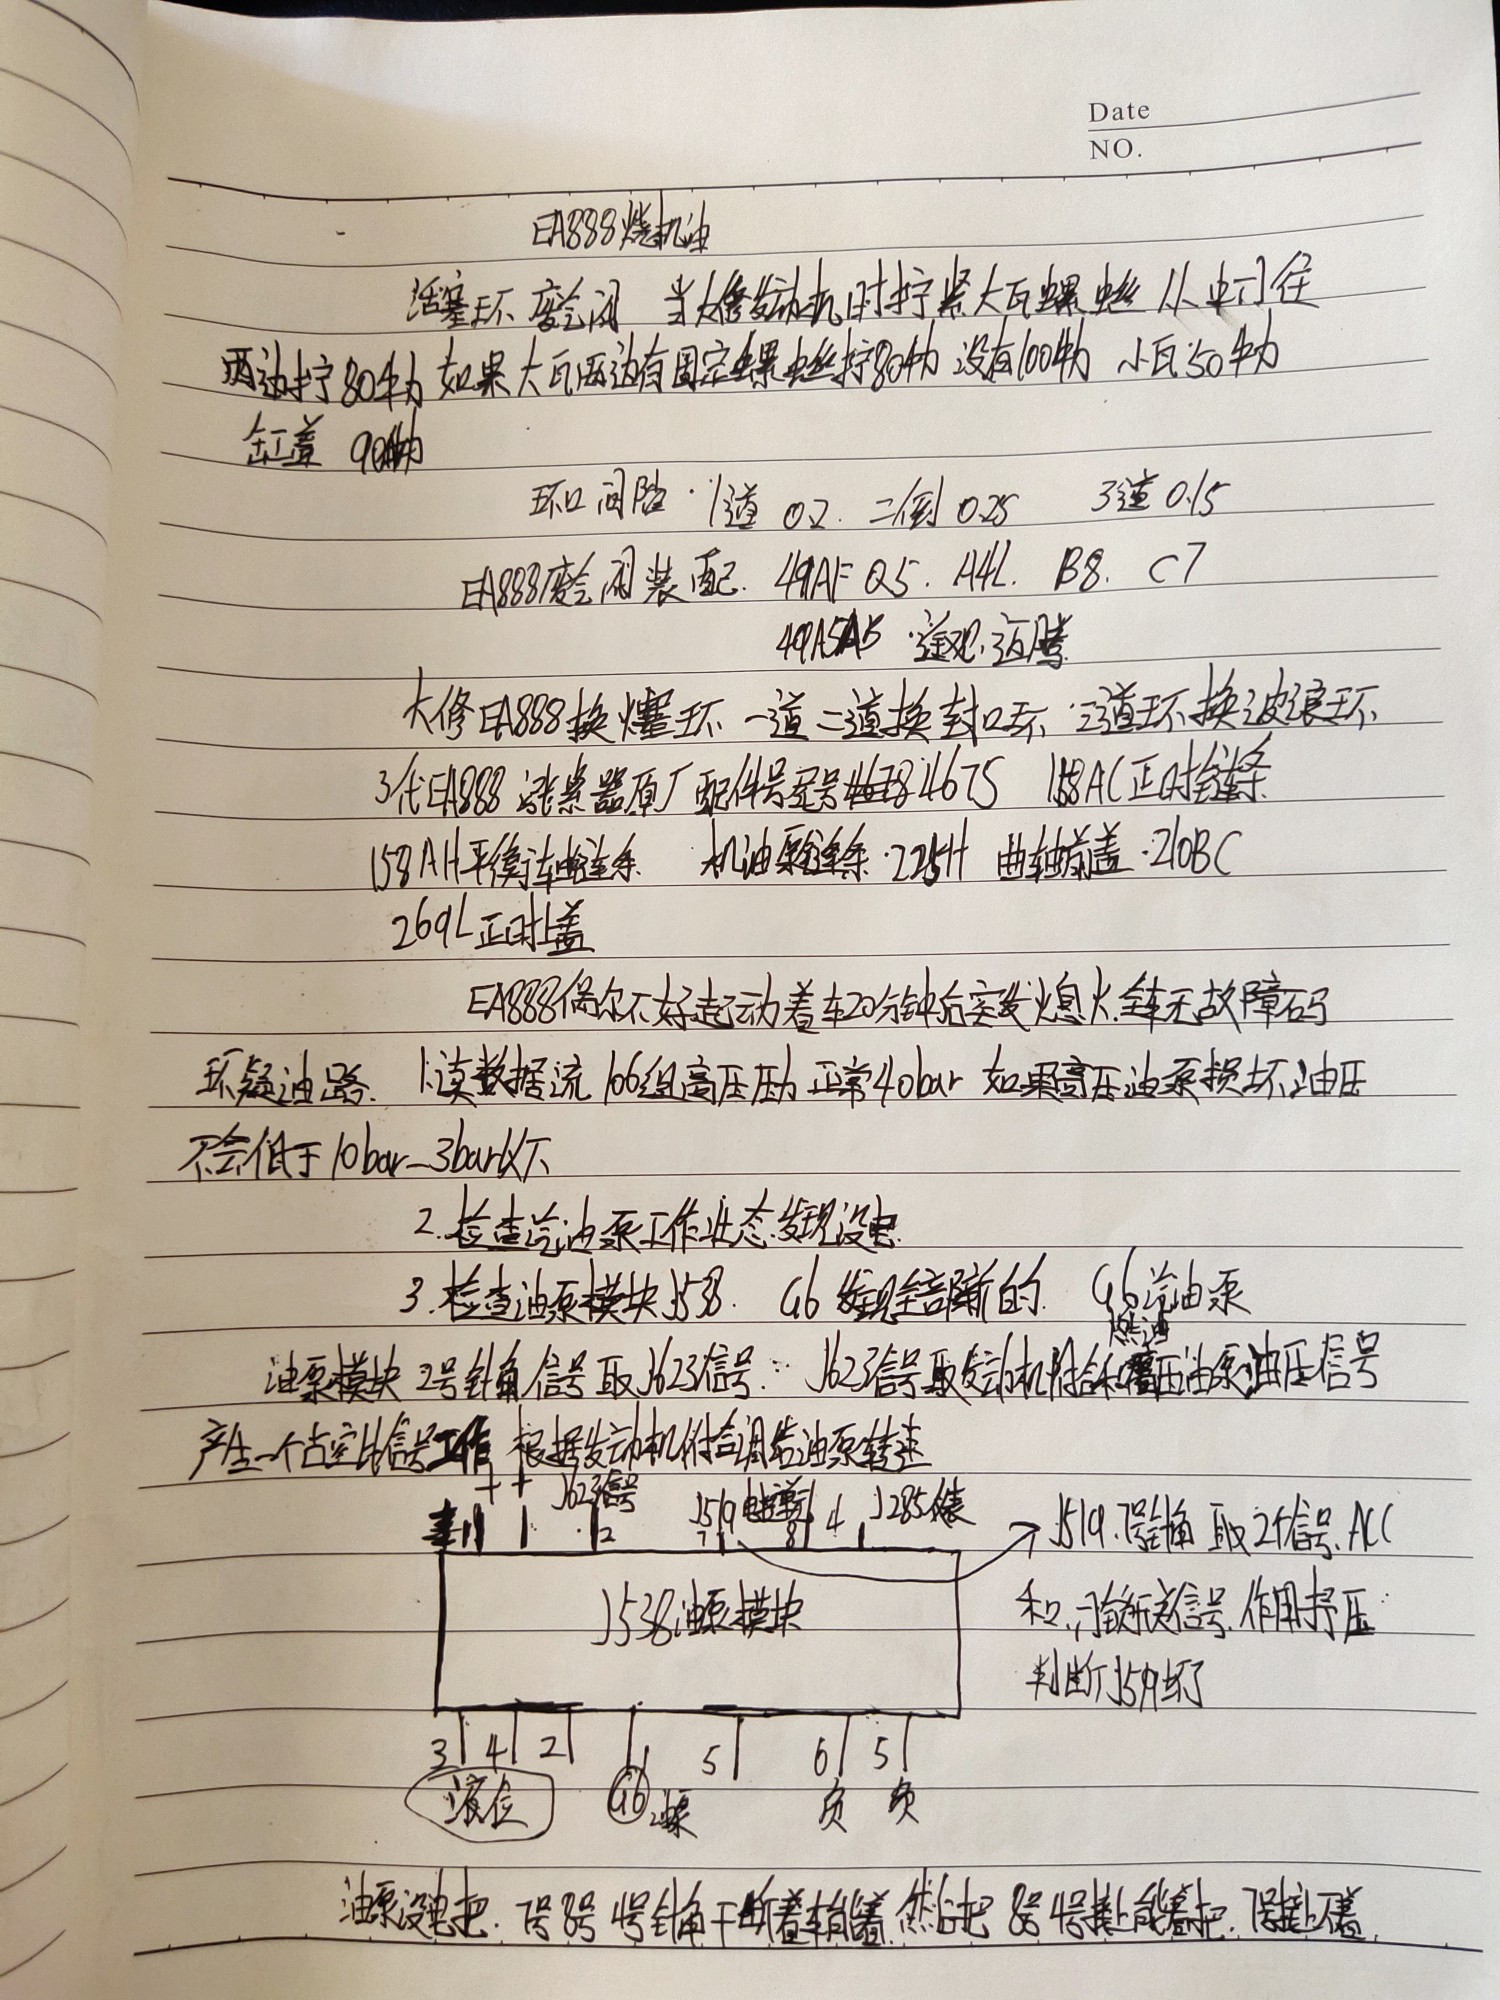 Date
NO.
EA888烧机油
活塞环 废气阀 当大修发动机时拧紧大瓦螺丝 从中间往
两边拧80牛力 如果大瓦两边有固定螺丝拧80牛力 没有100牛力 小瓦50牛力
缸盖 90牛力
环口间隙·1道 0.2. 二倒0.25 3道0.15
EA888废气阀装配. 49AF Q5. A4L. B8. C7
途观.迈腾
大修EA888换 环 一道二道换封口环 三道环换波浪环
3代EA888涨紧器原厂配件号 467S 158AC正时链条
158AH平衡轴链条 机油泵链条·225H 曲轴前盖·210BC
269L正时上盖
EA888偶尔不好起动着车20分钟后突发熄火.全车无故障码
环疑油路. 1.读数据流106组高压压力 正常40bar 如果高压油泵损坏油压
不会低于10bar-3bar以下
2.检查汽油泵工作状态.发现没电.
3.检查油泵模块J538. G6发现全部新的. G6汽油泵
燃油
油泵模块2号针角信号取J623信号. J623信号取发动机附合和高压油泵油压信号
产生一个占空比信号工作 根据发动机附合调节油泵转速
+ + J623信号 J519 J285仪表
2 7 8 4
J538油泵模块
J519.7号针角取2个信号.ACC
和.门锁开关信号.作用予压
判断J519坏了
3 4 2 1 5 6 5
液位 G6 油泵 负 负
油泵没电把.7号8号4号针角干断着车能着.然后把8号4号接上能着把.7号接上不着.